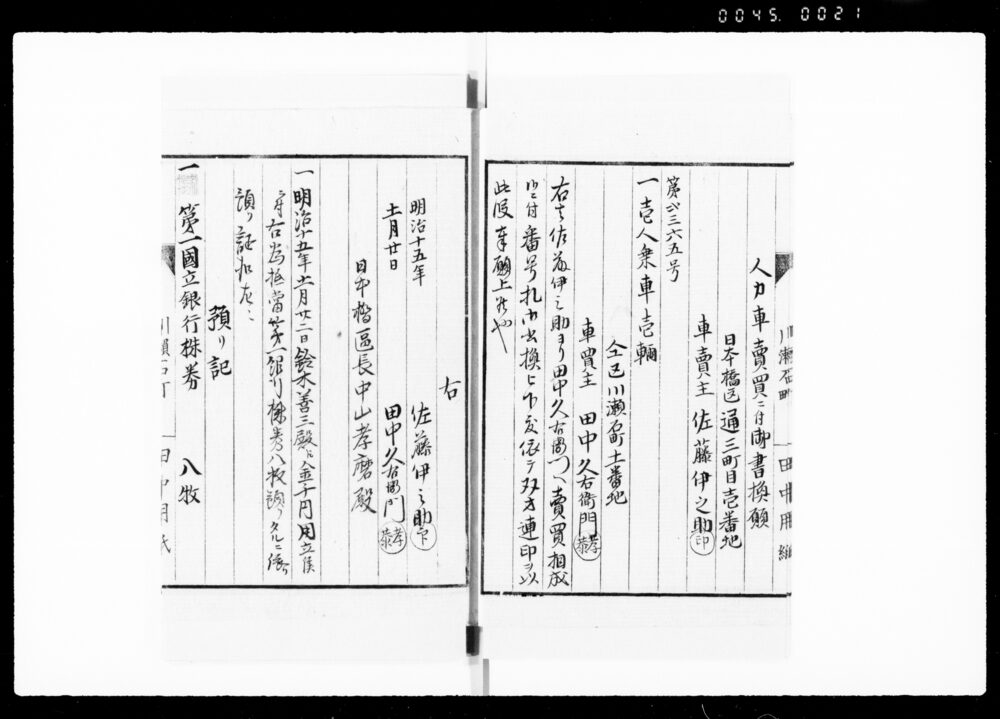 0045. 0021
川瀬石町 田中用紙
人力車賣買ニ付御書換願
日本橋区通三町目壱番地
車賣主 佐藤伊之助 印
第弐三六五号
一壱人乗車壱輛
仝区川瀬石町十一番地
車買主 田中久右衛門
右は佐藤伊之助ヨリ田中久右衛門へ賣買相成
候ニ付番号札御書換被下度依テ双方連印ヲ以
此段奉願上候也
右
明治十五年 佐藤伊之助
十一月廿日 田中久右衛門
日本橋區長中山孝麿殿
一明治十五年十一月廿二日鈴木善三殿ニ金千円用立候
ニ付右為抵當第一銀行株券八枚預リタルニ依リ
預リ証如左ニ
預リ記
一第一國立銀行株券 八枚
川瀬石町 田中用紙